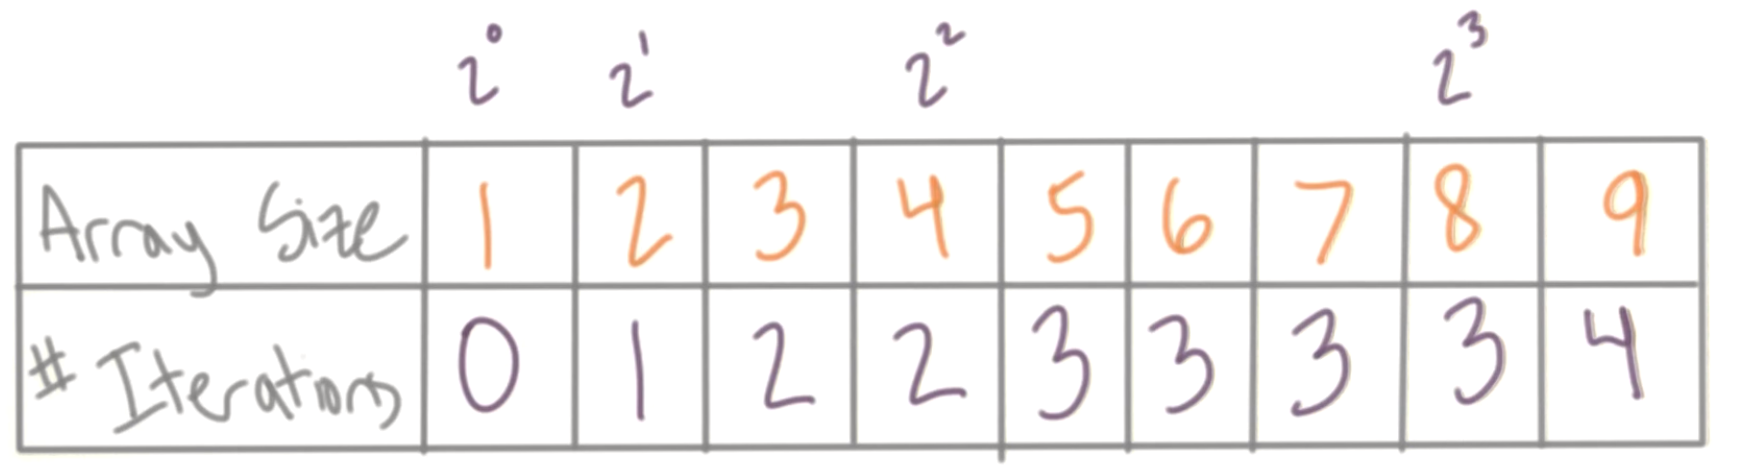 2⁰ 2¹ 2² 2³
Array Size 1 2 3 4 5 6 7 8 9
# Iterations 0 1 2 2 3 3 3 3 4